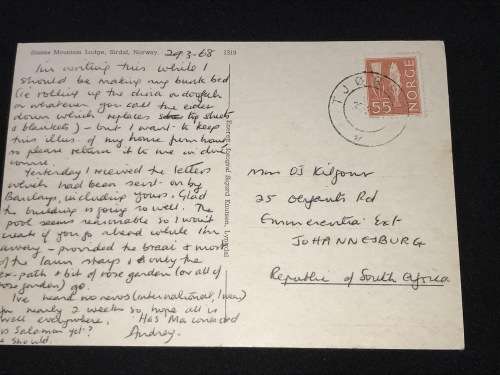 Mountain Lodge, Sirdal, Norway. 29.3.68 1319
I'm writing this while I
should be making my bunk bed
(ie rolling up the or
or whatever you call the eider
down which replaces top sheets
& blankets) – but I want to keep
this illus. of my home from home
so please return it to me in due
course.
Yesterday I received the letters
which had been sent on by
Barclays, including yours. Glad
the building is going so well. The
pool seems reasonable so I won't
if you go ahead while I'm
away – provided the braai & most
of the lawn stays & only the
path & bit of rose garden (or all of
rose garden) go.
I've heard no news (international, I mean)
for nearly 2 weeks so, hope all is
well everywhere. Has Ma
Salomon yet?
should. Audrey.
Eneret
TJØ
55
NORGE
Mrs DJ Kilgour
25 Rd
Emmerentia Ext
JOHANNESBURG
Republic of South Africa